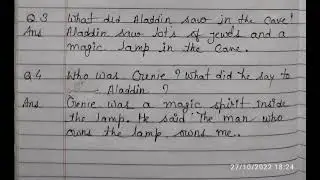 Q.3 What did Aladdin saw in the cave?
Ans Aladdin saw lots of jewels and a
magic lamp in the cave.
Q.4 Who was Genie? What did he say to
Aladdin ?
Ans. Genie was a magic spirit inside
the lamp. He said the man who
owns the lamp, owns me..
27/10/2022 18:24